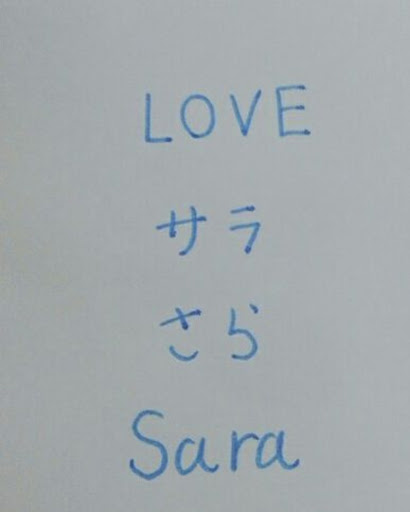 LOVE
サラ
さら
Sara